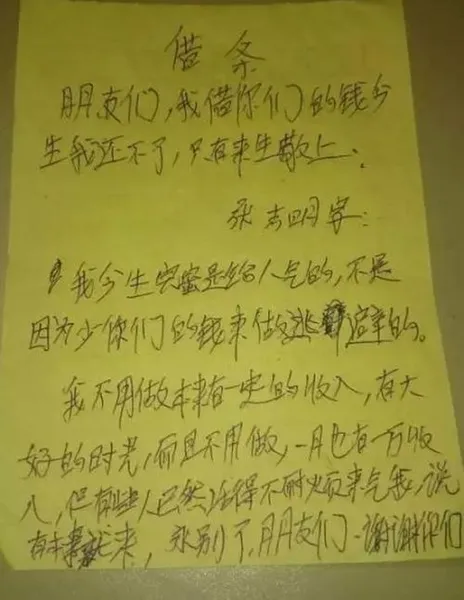 借条
朋友们,我借你们的钱今
生我还不了,只有来生敬上.
张志明字:
我今生完蛋是给人气的,不是
因为少你们的钱来做逃避的。
我不用做本来有一定的收入,有大
好的时光,而且不用做,一月也有一万收
入,但有些人已然活得不耐烦来气我,说
有本事就来,永别了,朋友们.谢谢你们